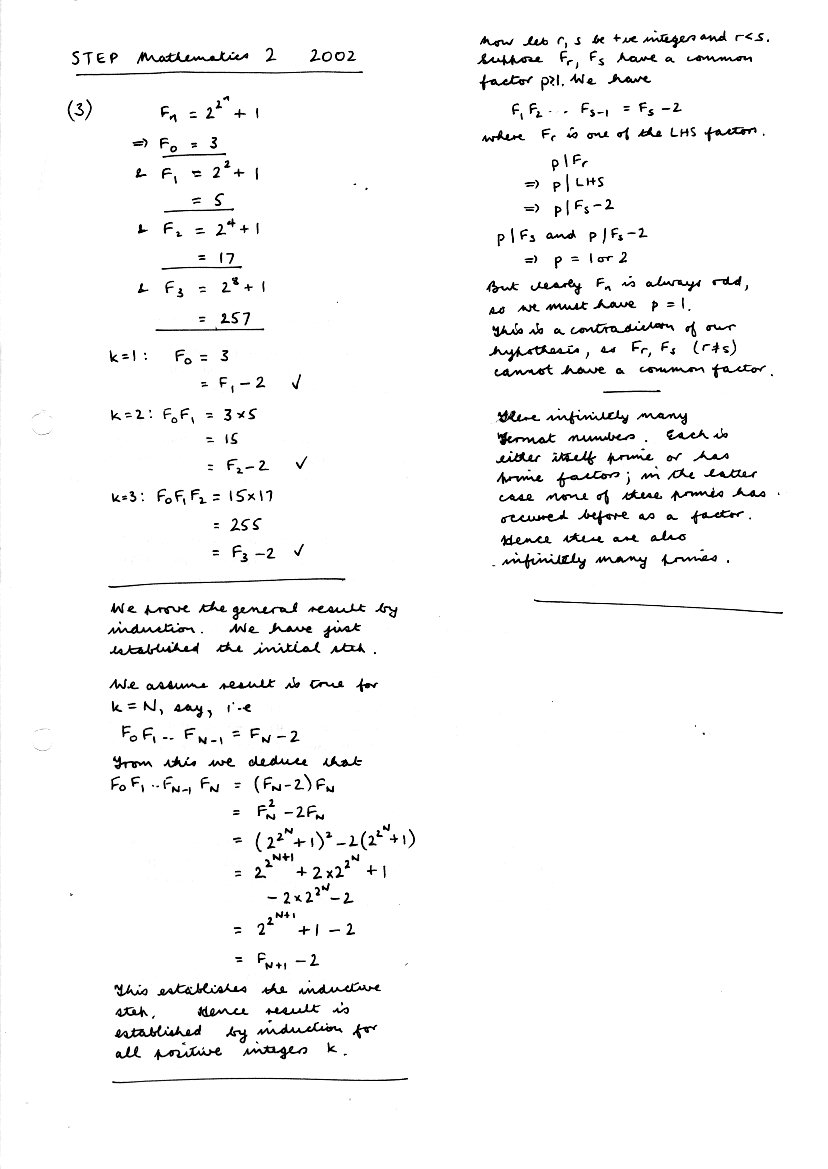 STEP Mathematics 2 2002
(3) Fₙ = 2^{2^n} + 1
⇒ F₀ = 3
& F₁ = 2² + 1
= 5
& F₂ = 2⁴ + 1
= 17
& F₃ = 2⁸ + 1
= 257
k=1: F₀ = 3
= F₁ − 2 ✓
k=2: F₀F₁ = 3×5
= 15
= F₂ − 2 ✓
k=3: F₀F₁F₂ = 15×17
= 255
= F₃ − 2 ✓
We prove the general result by
induction. We have just
established the initial step.
We assume result is true for
k = N, say, i.e
F₀F₁.. F_{N-1} = F_N − 2
From this we deduce that
F₀F₁..F_{N-1} F_N = (F_N − 2)F_N
= F_N² − 2F_N
= (2^{2^N} + 1)² − 2(2^{2^N} + 1)
= 2^{2^{N+1}} + 2×2^{2^N} + 1
− 2×2^{2^N} − 2
= 2^{2^{N+1}} + 1 − 2
= F_{N+1} − 2
This establishes the inductive
step. Hence result is
established by induction for
all positive integers k.
Now let r, s be +ve integers and r<s.
Suppose F_r, F_s have a common
factor p>1. We have
F₁F₂... F_{s-1} = F_s − 2
where F_r is one of the LHS factors.
p|F_r
⇒ p|LHS
⇒ p|F_s−2
p|F_s and p|F_s−2
⇒ p = 1 or 2
But clearly Fₙ is always odd,
so we must have p = 1.
This is a contradiction of our
hypothesis, so F_r, F_s (r≠s)
cannot have a common factor.
There infinitely many
Fermat numbers. Each is
either itself prime or has
prime factors; in the latter
case none of these primes has
occured before as a factor.
Hence there are also
infinitely many primes.